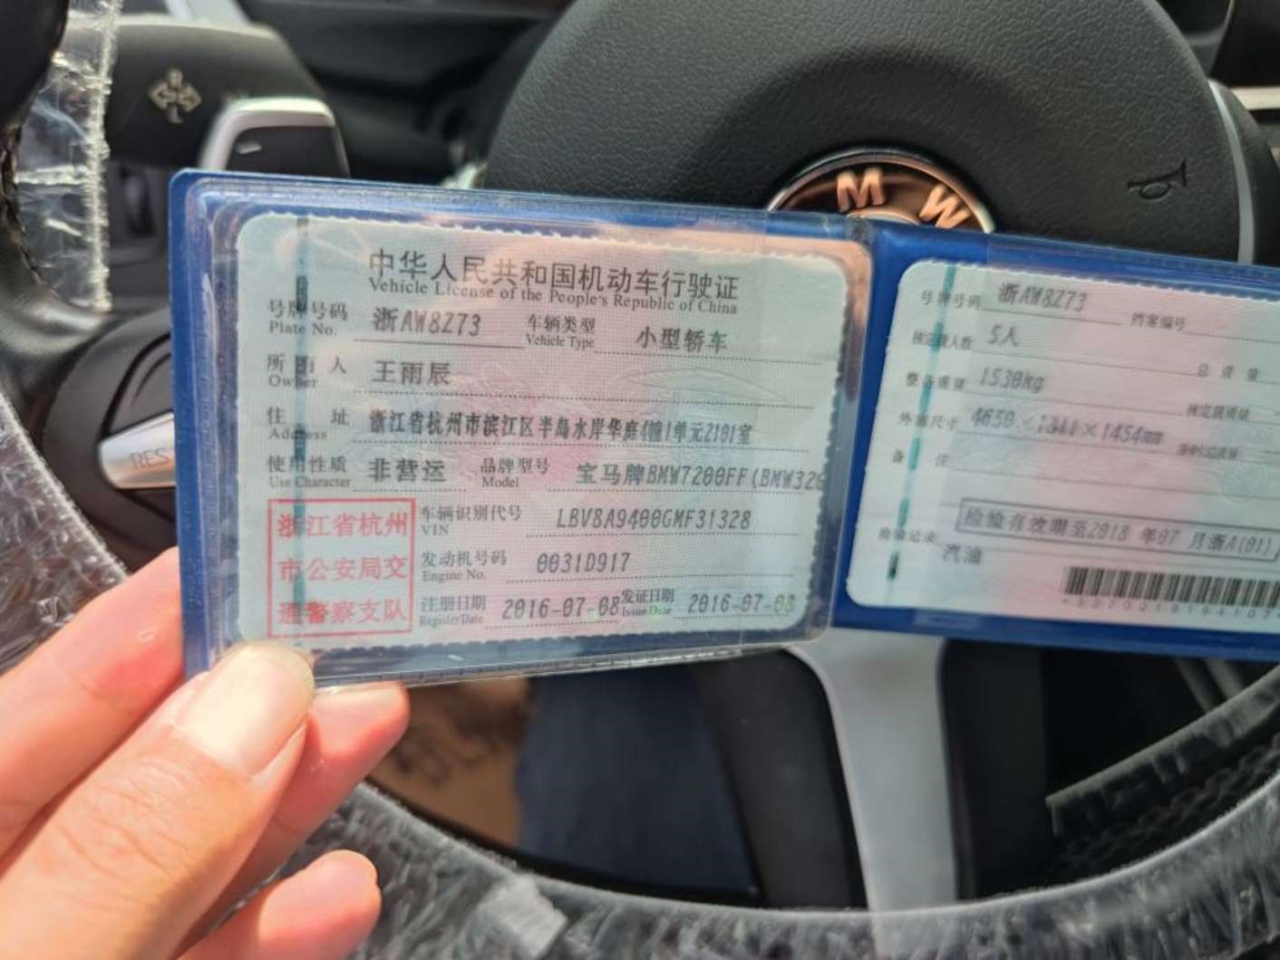 M W
RES
中华人民共和国机动车行驶证
Vehicle License of the People's Republic of China
号牌号码 浙AW8Z73 车辆类型 小型轿车
Plate No. Vehicle Type
所有人 王雨辰
Owner
住址 浙江省杭州市滨江区半岛水岸华庭 1单元2101室
Address
使用性质 非营运 品牌型号 宝马牌BMW7200FF(BMW320
Use Character Model
浙江省杭州
市公安局交
通警察支队
车辆识别代号 LBV8A9400GMF31328
VIN
发动机号码 0031D917
Engine No.
注册日期 2016-07-08 发证日期 2016-07-08
Register Date Issue Date
号牌号码 浙AW8Z73 档案编号
核定载人数 5人 总质量
整备质量 1530kg 核定载质量
外廓尺寸 4650×1811×1454mm
备注
检验有效期至2018年07月浙A(01)
检验记录
汽油